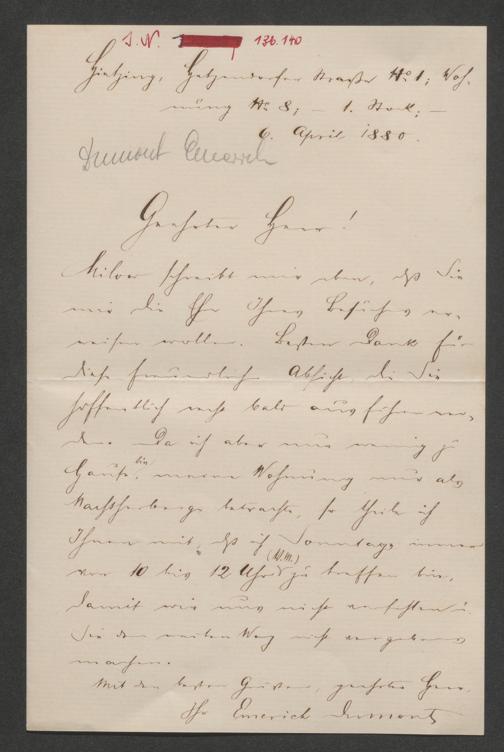 I. N. 136.140
Hietzing, Hetzendorfer Straße No 1; Woh-
nung No 8; – 1. Stock; –
6. April 1880.
Dumont Emerich
Geehrter Herr!
Milow schreibt mir eben, daß Sie
mir die Ehre Ihres Besuches er-
weisen wollen. Besten Dank für
diese freundliche Absicht, die Sie
hoffentlich recht bald ausführen wer-
den. Da ich aber nur wenig zu
Hause bin, meine Wohnung nur als
Nachtherberge betrachte, so theile ich
Ihnen mit, daß ich Sonntags immer
von 10 bis 12 Uhr (V.M.) zu treffen bin,
damit wir uns nicht verfehlen u.
Sie den weiten Weg nicht vergebens
machen.
Mit den besten Grüßen, geehrter Herr,
Ihr Emerich Dumont